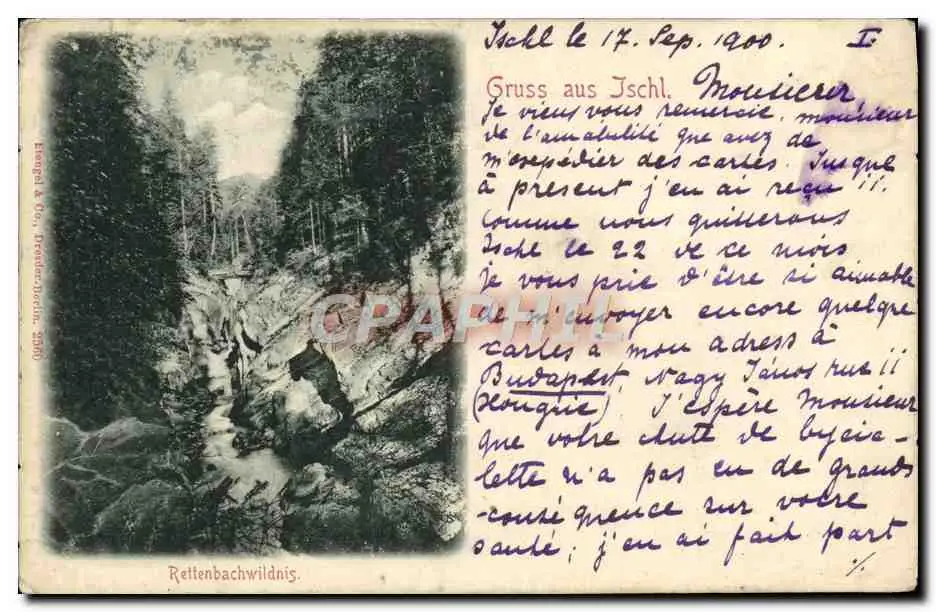 Ischl le 17. Sep. 1900. I
Gruss aus Ischl. Monsieur
Je viens vous remercie, monsieur
de l'amabilité que avez de
m'expédier des cartes. Jusque
à présent j'en ai reçu 11.
Comme nous quitterons
Ischl le 22 de ce mois
je vous prie d'être si aimable
de m'envoyer encore quelque
cartes à mon adress à
Budapest, Nagy János rue 11
(Hongrie). J'espère Monsieur
que votre chute de bycic-
lette n'a pas eu de grands
-conséquence sur votre
santé; j'en ai fait part
./.
Rettenbachwildnis.
Stengel & Co., Dresden-Berlin. 2560
CPAPHIL